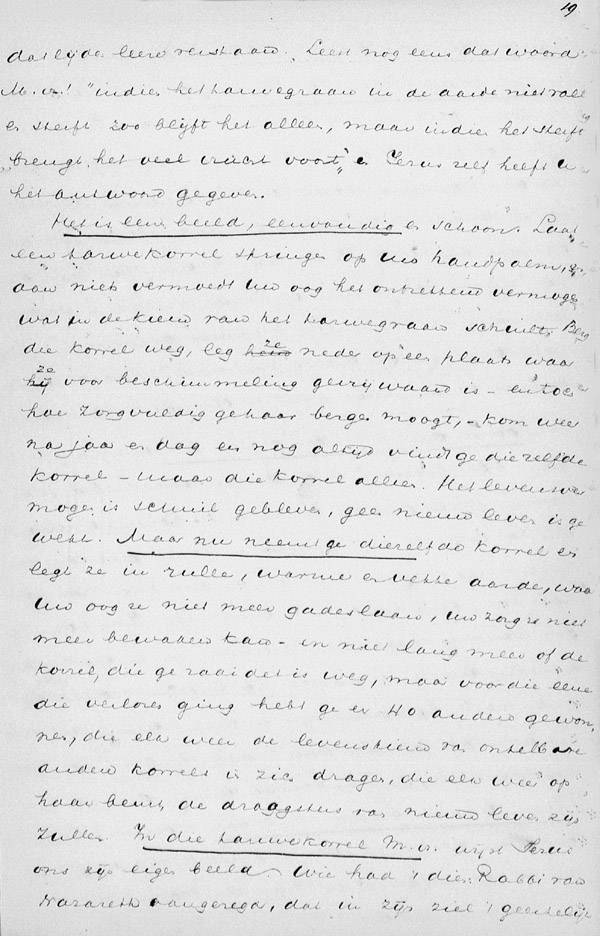 19
dat lijden leeren verstaan. Leest nog eens dat woord
M. v.! "indien het tarwegraan in de aarde niet valt
en sterft zoo blijft het alleen, maar indien het sterft
brengt het veel vrucht voort" en Jezus zelf heeft u
het antwoord gegeven.
Het is een beeld, eenvoudig en schoon. Laat
een tarwekorrel springen op uw handpalm, en
aan niets vermoedt uw oog het ontzettend vermogen
wat in de kiem van het tarwegraan schuilt. Berg
die korrel weg, leg ze neder op een plaats waar
ze voor beschimmeling gevrijwaard is - en toch
hoe zorgvuldig ge haar bergen moogt, - kom weer
na jaar en dag en nog altijd vindt ge diezelfde
korrel - maar die korrel alleen. Het levensver
mogen is schuil gebleven, geen nieuw leven is ge
wekt. Maar nu neemt ge diezelfde korrel en
legt ze in rulle, warme en vette aarde, waar
uw oog ze niet meer gadeslaan, uw zorg ze niet
meer bewaren kan - en niet lang meer of de
korrel, die ge zaaidet is weg, maar voor die eene
die verloren ging hebt ge er 40 anderen gewon
nen, die elk weer de levenskiem van ontelbare
andere korrels in zich dragen, die elk weer op
haar beurt de draagsters van nieuw leven zijn
zullen. In die tarwekorrel M. v. wijst Jezus
ons zijn eigen beeld. Wie had 't dien Rabbi van
Nazareth aangezegd, dat in zijn ziel 't geestelijk